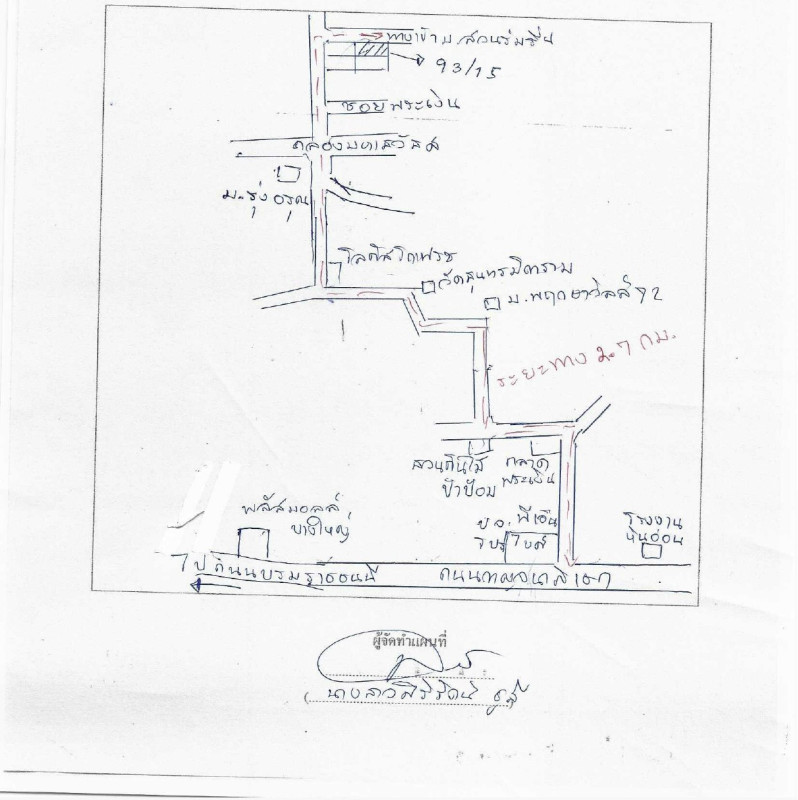 ทางเข้า ม.สวนร่มรื่น
93/15
ซอยพระเงิน
คลองมหาสวัสดิ์
ม.รุ่งอรุณ
โลตัสโกเฟรช
วัดสุนทรมิตราราม
ม.พฤกษาวิลล์ 92
ระยะทาง 2.7 กม.
สวนต้นไม้
ป้าป้อม
ตลาด
พระเงิน
โรงงาน
หินอ่อน
พลัสมอลล์
บางใหญ่
ไปถนนบรมราชชนนี
ถนนกาญจนาภิเษก
ผู้จัดทำแผนที่